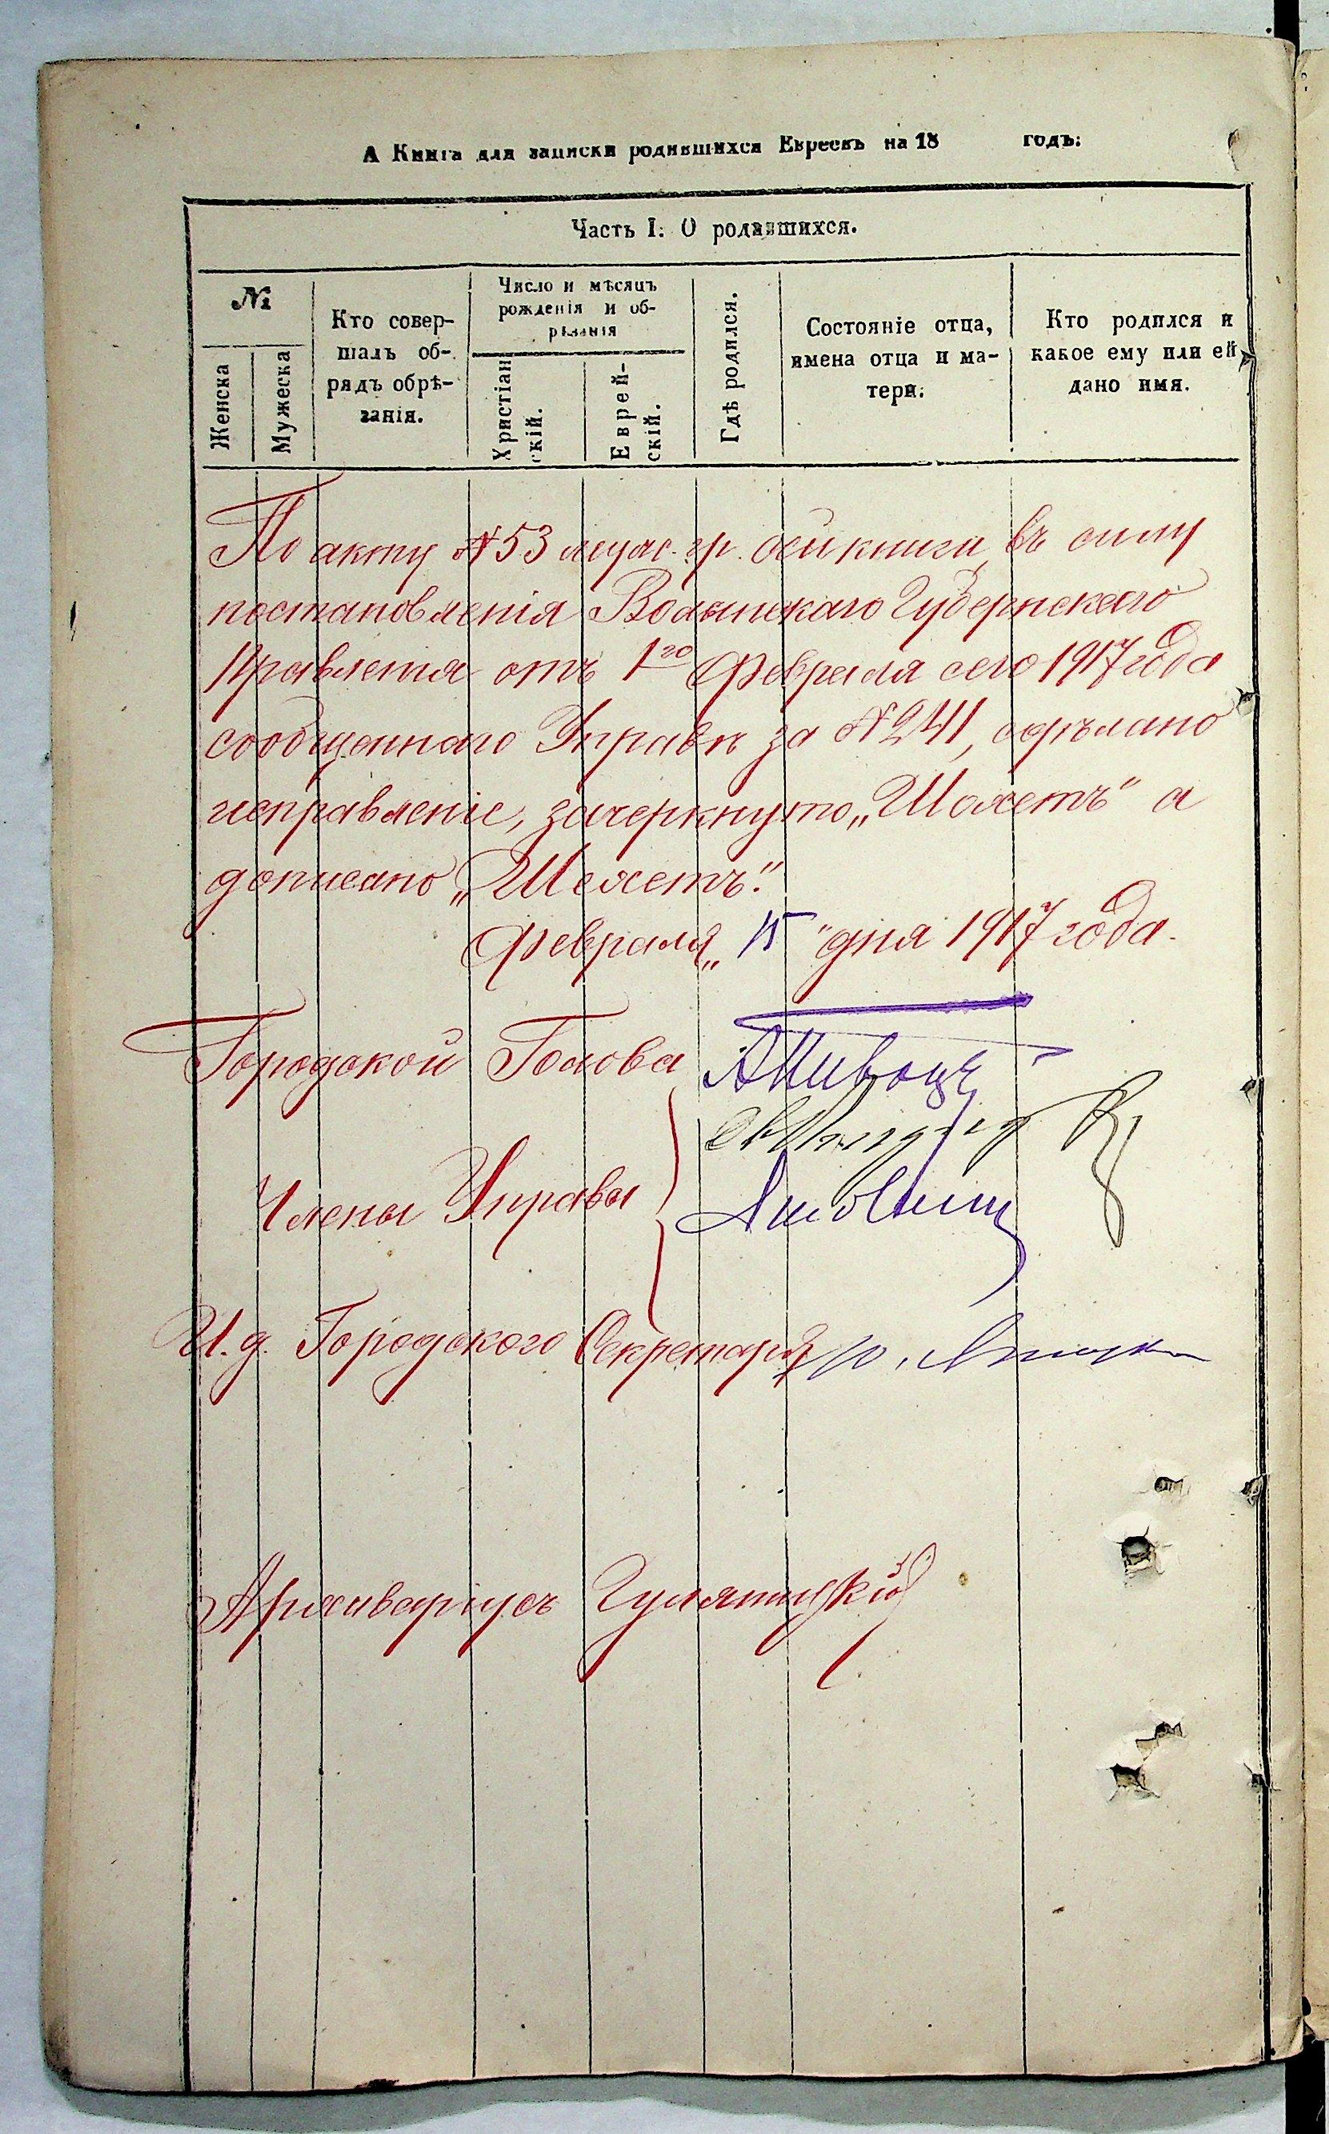 А Книга для записки родившихся Евреевъ на 18 годъ:
Часть I. О родившихся.
№
Женска
Мужеска
Кто совер-
шалъ об-
рядъ обрѣ-
занія.
Число и мѣсяцъ
рожденія и об-
рѣзанія
Христіан
скій.
Еврей-
скій.
Гдѣ родился.
Состояніе отца,
имена отца и ма-
тери.
Кто родился и
какое ему или ей
дано имя.
По акту №53 мужс. гр. сей книги, въ силу
постановленія Волынскаго Губернскаго
Правленія отъ 1го Февраля сего 1917 года
сообщеннаго Управѣ за №241, сдѣлано
исправленіе, зачеркнуто „Шолетъ" а
дописано „Шехетъ".
Февраля „15" дня 1917 года.
Городской Голова
Члены Управы
И. д. Городского Секретаря
Архиваріусъ Гулятицкій